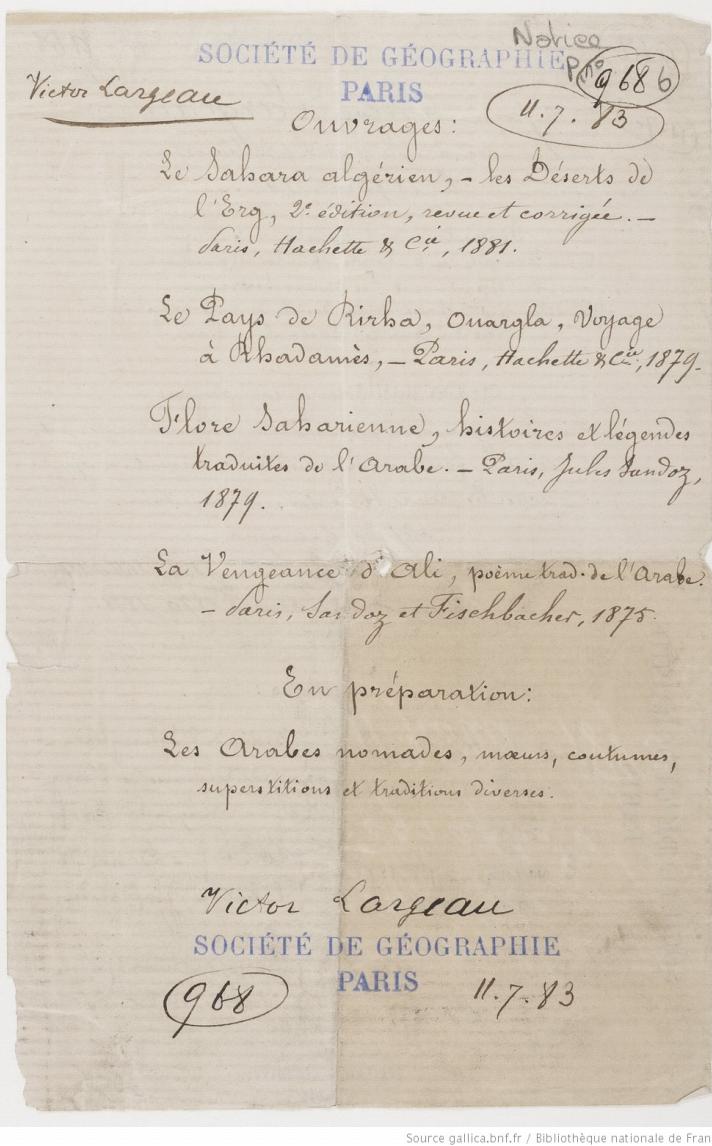 Notice
SOCIÉTÉ DE GÉOGRAPHIE
Pn° 968 b
Victor Largeau
PARIS
11.7.83
Ouvrages:
Le Sahara algérien, - les Déserts de
l'Erg, 2e édition, revue et corrigée. -
Paris, Hachette & Cie, 1881.
Le Pays de Rirha, Ouargla, Voyage
à Rhadamès, - Paris, Hachette & Cie, 1879.
Flore Saharienne, histoires et légendes
traduites de l'Arabe. - Paris, Jules Sandoz,
1879.
La Vengeance d'Ali, poème trad. de l'Arabe.
- Paris, Sandoz et Fischbacher, 1875.
En préparation:
Les Arabes nomades, mœurs, coutumes,
superstitions et traditions diverses.
Victor Largeau
SOCIÉTÉ DE GÉOGRAPHIE
PARIS
968
11.7.83
Source gallica.bnf.fr / Bibliothèque nationale de Fran